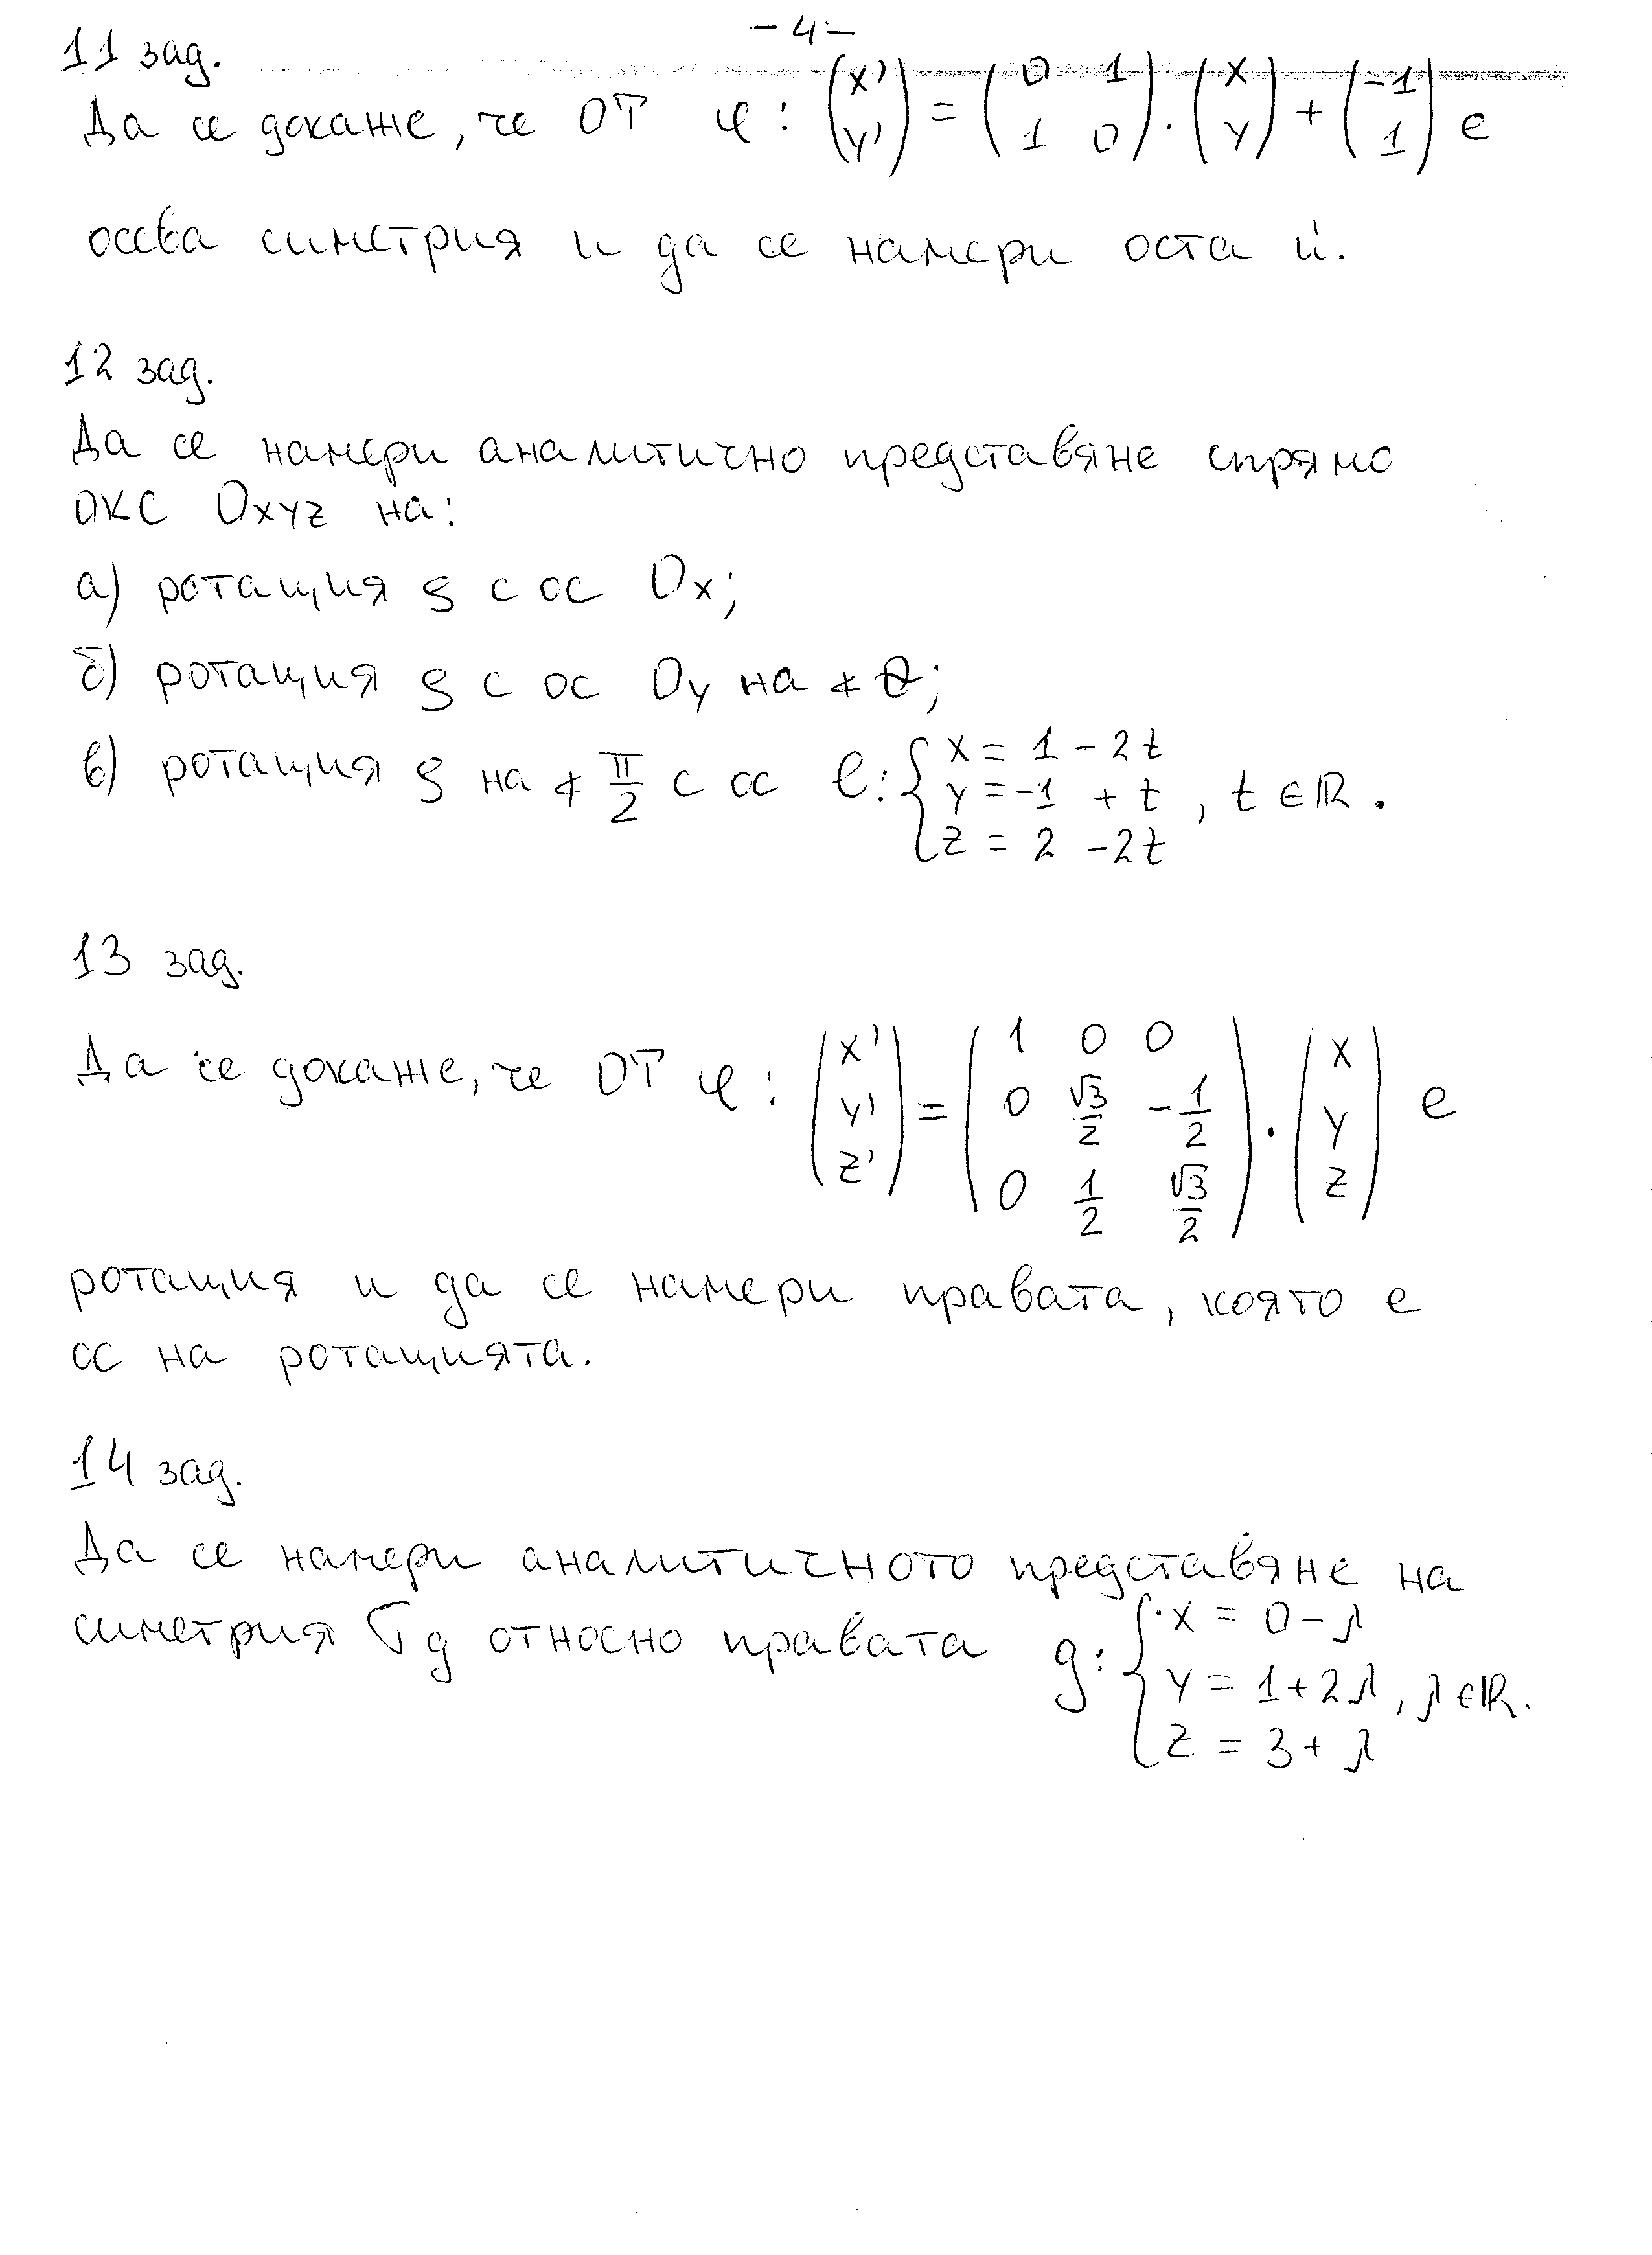 - 4 -
11 зад.
Да се докаже, че ОТ φ: (x' y') = (0 1 1 0) . (x y) + (-1 1) е
осева симетрия и да се намери оста ѝ.
12 зад.
Да се намери аналитично представяне спрямо
ОКС Oxyz на:
а) ротация ρ с ос Ox;
б) ротация ρ с ос Oy на ∢ θ;
в) ротация ρ на ∢ π/2 с ос l: { x = 1 - 2t
y = -1 + t , t ∈ ℝ.
z = 2 - 2t
13 зад.
Да се докаже, че ОТ φ: (x' y' z') = (1 0 0 0 √3/2 -1/2 0 1/2 √3/2) . (x y z) е
ротация и да се намери правата, която е
ос на ротацията.
14 зад.
Да се намери аналитичното представяне на
симетрия σg относно правата g: { x = 0 - λ
y = 1 + 2λ, λ ∈ ℝ.
z = 3 + λ